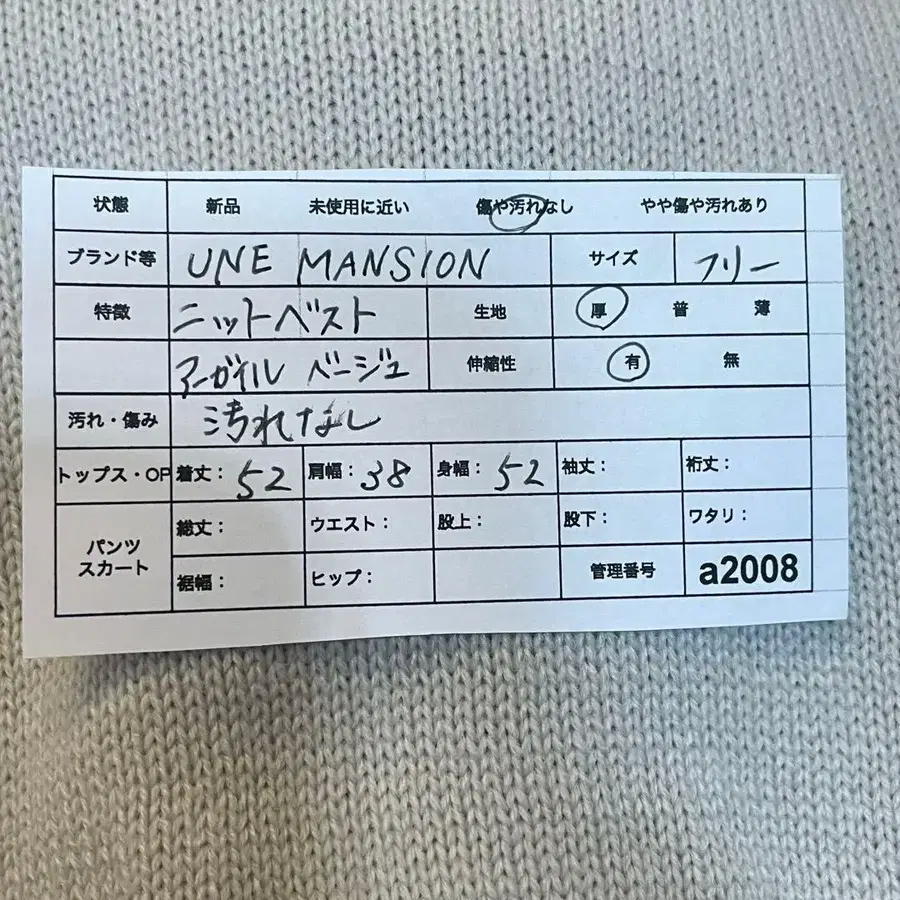 状態 新品 未使用に近い 傷や汚れなし やや傷や汚れあり
ブランド等 UNE MANSION サイズ フリー
特徴 ニットベスト 生地 厚 普 薄
アーガイル ベージュ 伸縮性 有 無
汚れ・傷み 汚れなし
トップス・OP 着丈: 52 肩幅: 38 身幅: 52 袖丈: 裄丈:
パンツ スカート 総丈: ウエスト: 股上: 股下: ワタリ:
裾幅: ヒップ: 管理番号 a2008